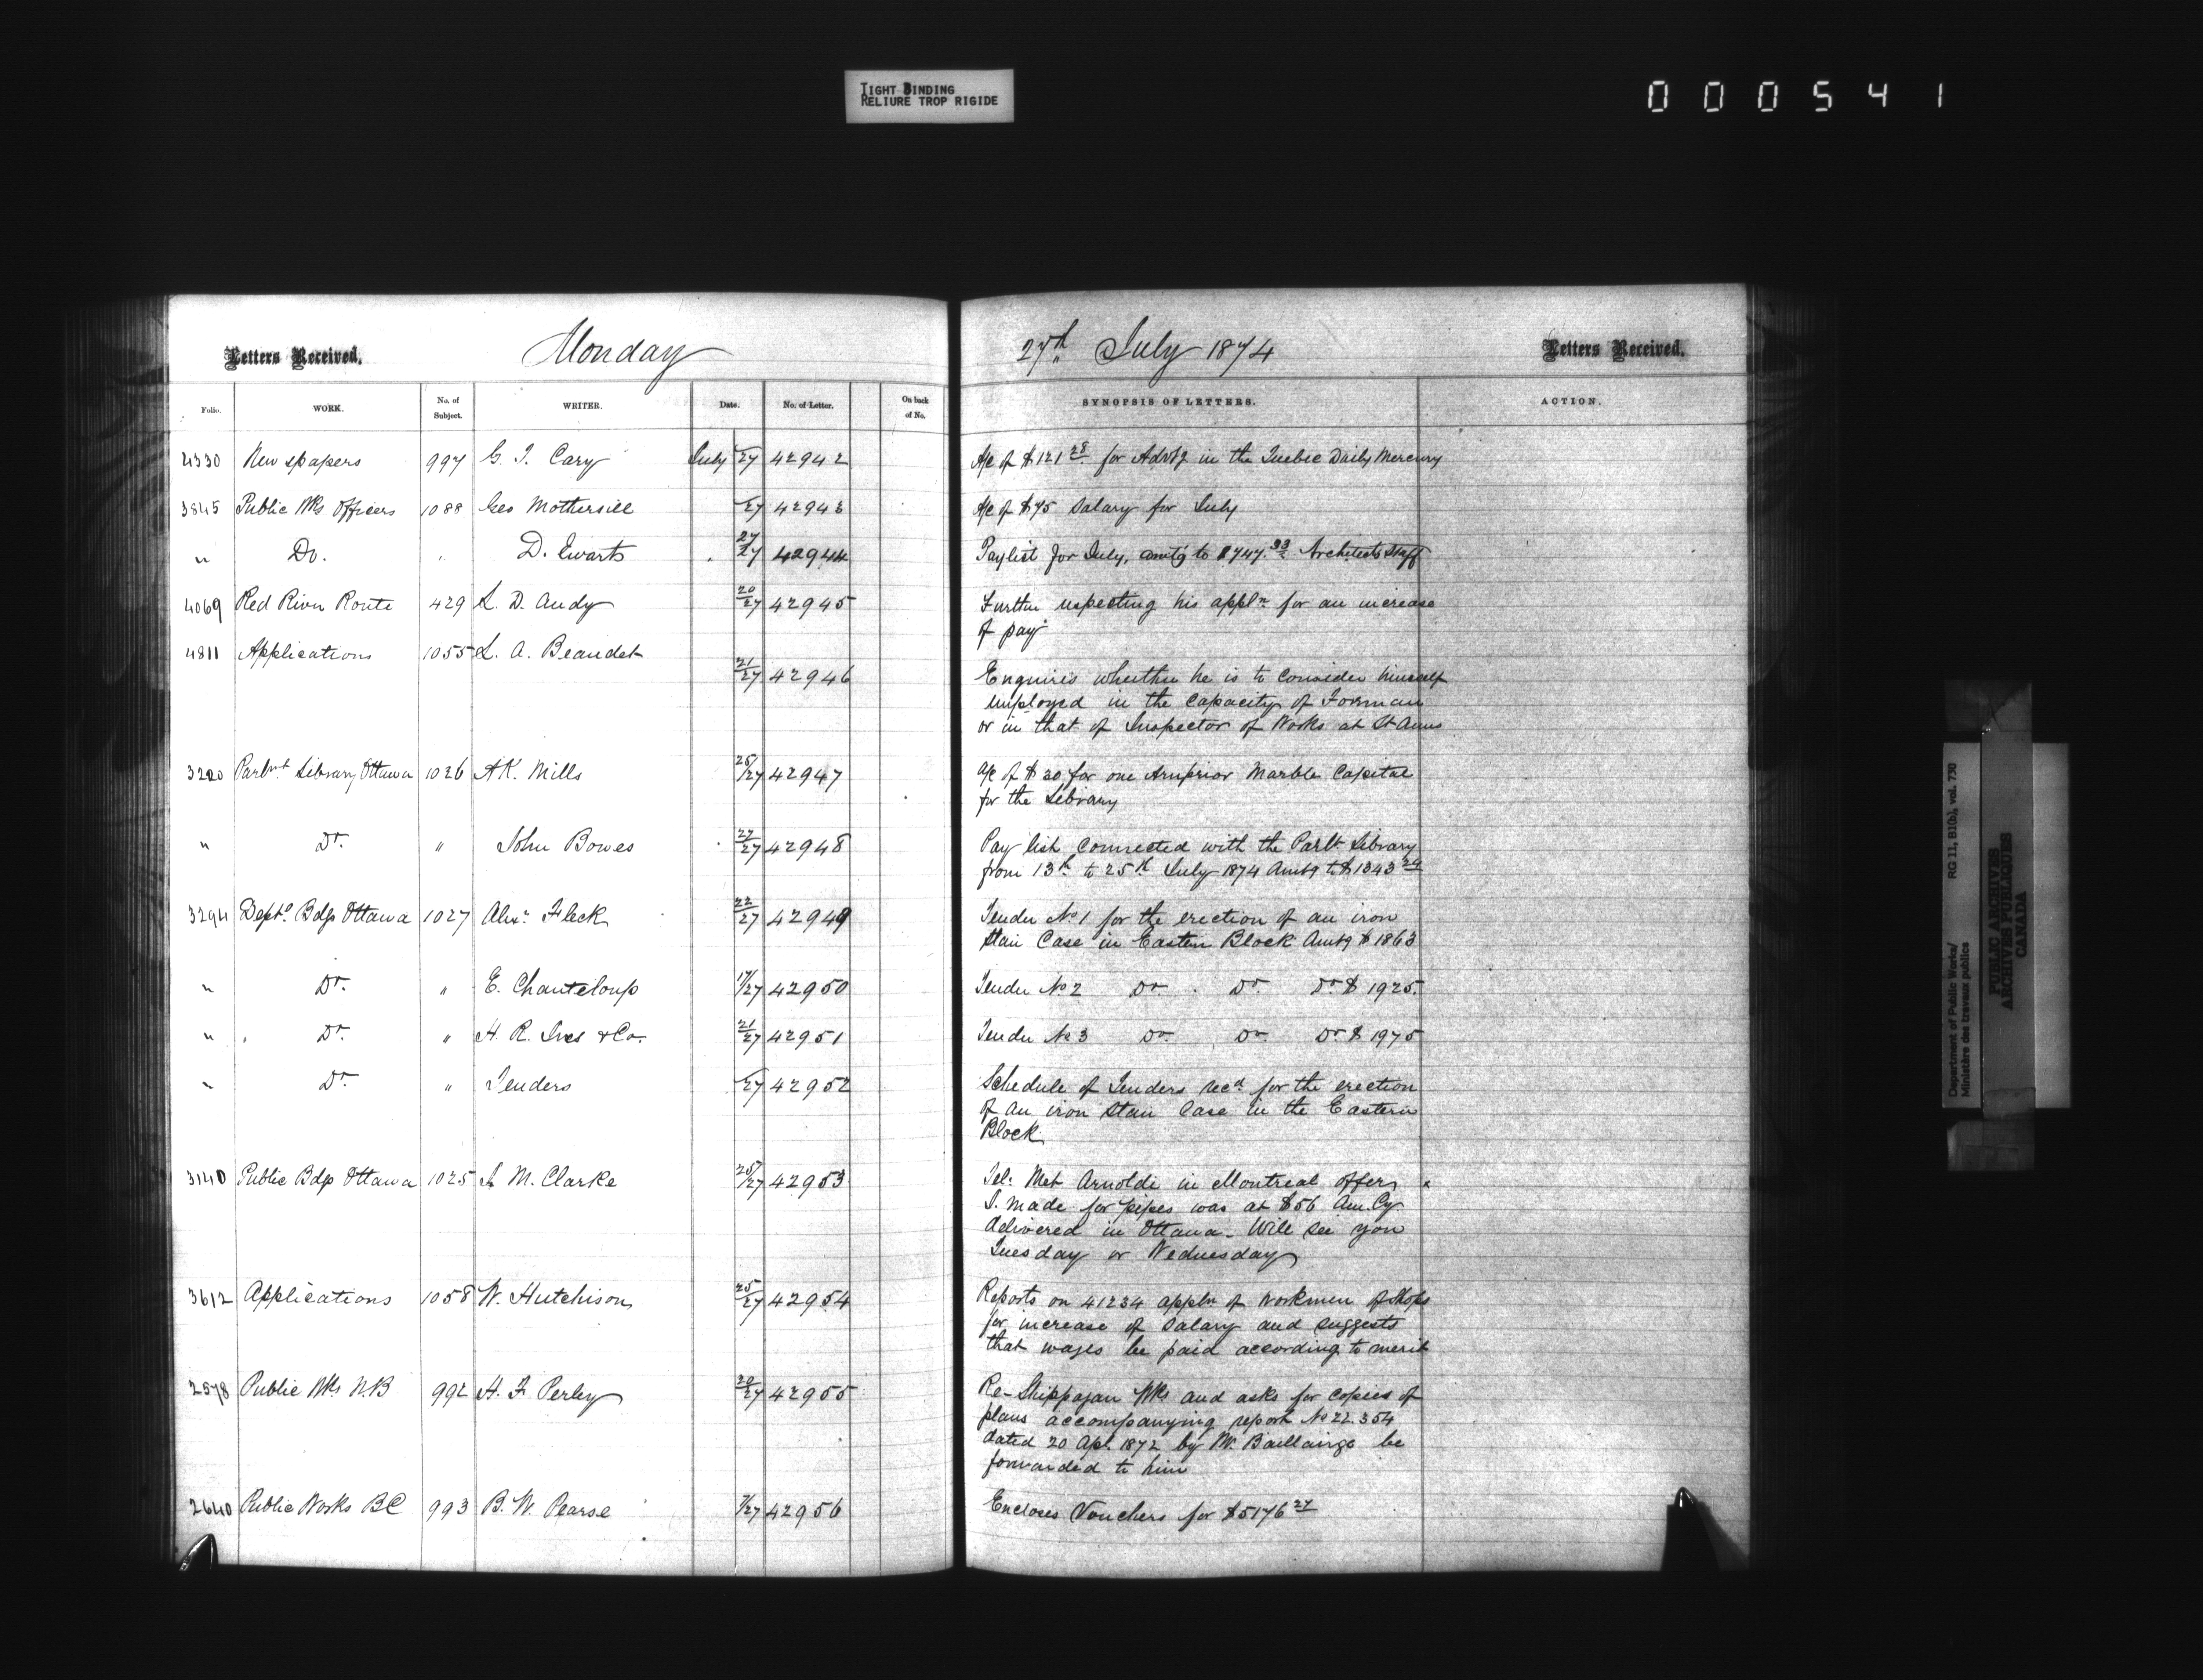 TIGHT BINDING
RELIURE TROP RIGIDE
000541
Letters Received. Monday 27th July 1874 Letters Received.
Folio. WORK. No. of Subject. WRITER. Date. No. of Letter. On back of No. SYNOPSIS OF LETTERS. ACTION.
4330 Newspapers 997 G. T. Cary July /27 42942 A/c of $121 28 for Advtg in the Quebec Daily Mercury
3845 Public Wks Officers 1088 Geo Mothersill /27 42943 A/c of $75 Salary for July
" Do. " D. Ewart 27/27 42944 Paylist for July, amtg to $747.33 Architects Staff
4069 Red River Route 429 L. D. Audy 20/27 42945 Further respecting his appln for an increase
of pay
4811 Applications 1055 L. A. Beaudet 21/27 42946 Enquires whether he is to consider himself
employed in the capacity of Forman
or in that of Inspector of Works at St Anns
3220 Parlmt Library Ottawa 1026 A K. Mills 25/27 42947 A/c of $20 for one Arnprior Marble Capital
for the Library
" Do. " John Bowes 27/27 42948 Pay list connected with the Parlt Library
from 13th to 25th July 1874 Amtg to $1343
3294 Deptl Bdgs Ottawa 1027 Alexr Fleck 22/27 42949 Tender No 1 for the erection of an iron
Stair Case in Eastern Block Amtg $1863
" Do. " E. Chanteloup 17/27 42950 Tender No 2 Do. Do. Do $1925.
" Do. " H. R. Ives & Co. 21/27 42951 Tender No 3 Do. Do. Do $1975
" Do. " Tenders /27 42952 Schedule of Tenders recd for the erection
of an iron Stair Case in the Eastern
Block
3140 Public Bdgs Ottawa 1025 M. Clarke 25/27 42953 Tel: Met Arnoldi in Montreal offer
I. made for pipes was at $56 Am. Cy
delivered in Ottawa - Will see you
Tuesday or Wednesday
3612 Applications 1058 W. Hutchison 25/27 42954 Reports on 41234 appln of Workmen of Shops
for increase of Salary and suggests
that wages be paid according to merit
2578 Public Wks N.B 992 H. F Perley 20/27 42955 Re- Shippagan Wks and asks for copies of
plans accompanying report No 22.354
dated 20 Apl. 1872 by Mr. Baillairgé be
forwarded to him
2640 Public Works BC 993 B. W. Pearse 7/27 42956 Encloses Vouchers for $5176 27
Department of Public Works/ RG 11, B1(b), vol. 730
Ministère des travaux publics
PUBLIC ARCHIVES
ARCHIVES PUBLIQUES
CANADA